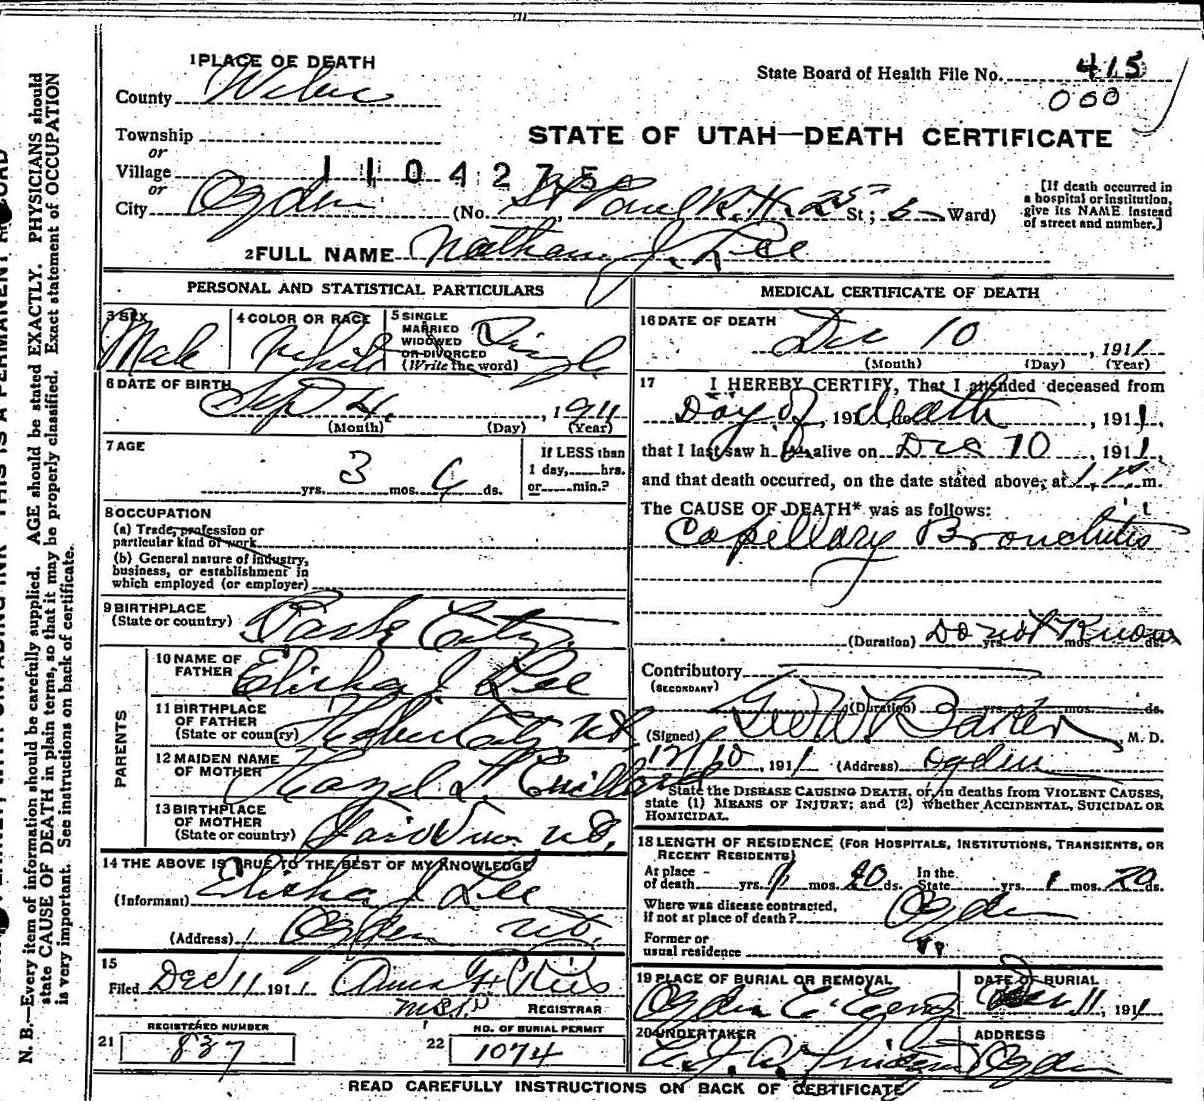 1 PLACE OF DEATH
County Weber
State Board of Health File No. 415
000
STATE OF UTAH—DEATH CERTIFICATE
Township
or
Village 1104275
or
City Ogden (No. St Paul R.H. 25 St; 5 Ward)
[If death occurred in a hospital or institution, give its NAME instead of street and number.]
2 FULL NAME Nathan J. Lee
PERSONAL AND STATISTICAL PARTICULARS
3 SEX
Male
4 COLOR OR RACE
White
5 SINGLE
MARRIED
WIDOWED
OR DIVORCED
(Write the word)
Single
6 DATE OF BIRTH
Sept 4, 1911
(Month) (Day) (Year)
7 AGE
yrs. 3 mos. 6 ds.
If LESS than
1 day, hrs.
or min.?
8 OCCUPATION
(a) Trade, profession or
particular kind of work
(b) General nature of industry,
business, or establishment in
which employed (or employer)
9 BIRTHPLACE
(State or country) Park City
PARENTS
10 NAME OF
FATHER Elisha J Lee
11 BIRTHPLACE
OF FATHER
(State or country) Heber City Ut
12 MAIDEN NAME
OF MOTHER Hazel L.
13 BIRTHPLACE
OF MOTHER
(State or country) Fairview Ut.
14 THE ABOVE IS TRUE TO THE BEST OF MY KNOWLEDGE
(Informant) Elisha J Lee
(Address) Ogden Ut.
15
Filed Dec 11 1911
REGISTRAR
21 REGISTERED NUMBER
837
22 NO. OF BURIAL PERMIT
1074
MEDICAL CERTIFICATE OF DEATH
16 DATE OF DEATH
Dec 10, 1911
(Month) (Day) (Year)
17 I HEREBY CERTIFY, That I attended deceased from
Day of, 191 death to, 1911,
that I last saw h alive on Dec 10, 1911,
and that death occurred, on the date stated above, at m.
The CAUSE OF DEATH* was as follows:
Capillary Bronchitis
(Duration) Do not Know yrs. mos. ds.
Contributory
(SECONDARY)
(Duration) yrs. mos. ds.
(Signed) Geo W Baker, M. D.
12/10, 1911 (Address) Ogden
State the DISEASE CAUSING DEATH, or, in deaths from VIOLENT CAUSES,
state (1) MEANS OF INJURY; and (2) whether ACCIDENTAL, SUICIDAL OR
HOMICIDAL.
18 LENGTH OF RESIDENCE (FOR HOSPITALS, INSTITUTIONS, TRANSIENTS, OR
RECENT RESIDENTS)
At place
of death yrs. 1 mos. 20 ds.
In the
State yrs. 1 mos. 20 ds.
Where was disease contracted,
if not at place of death? Ogden
Former or
usual residence "
19 PLACE OF BURIAL OR REMOVAL
Ogden
DATE OF BURIAL
Dec 11, 1911
20 UNDERTAKER
ADDRESS
Ogden
READ CAREFULLY INSTRUCTIONS ON BACK OF CERTIFICATE
N. B.—Every item of information should be carefully supplied. AGE should be stated EXACTLY. PHYSICIANS should
state CAUSE OF DEATH in plain terms, so that it may be properly classified. Exact statement of OCCUPATION
is very important. See instructions on back of certificate.